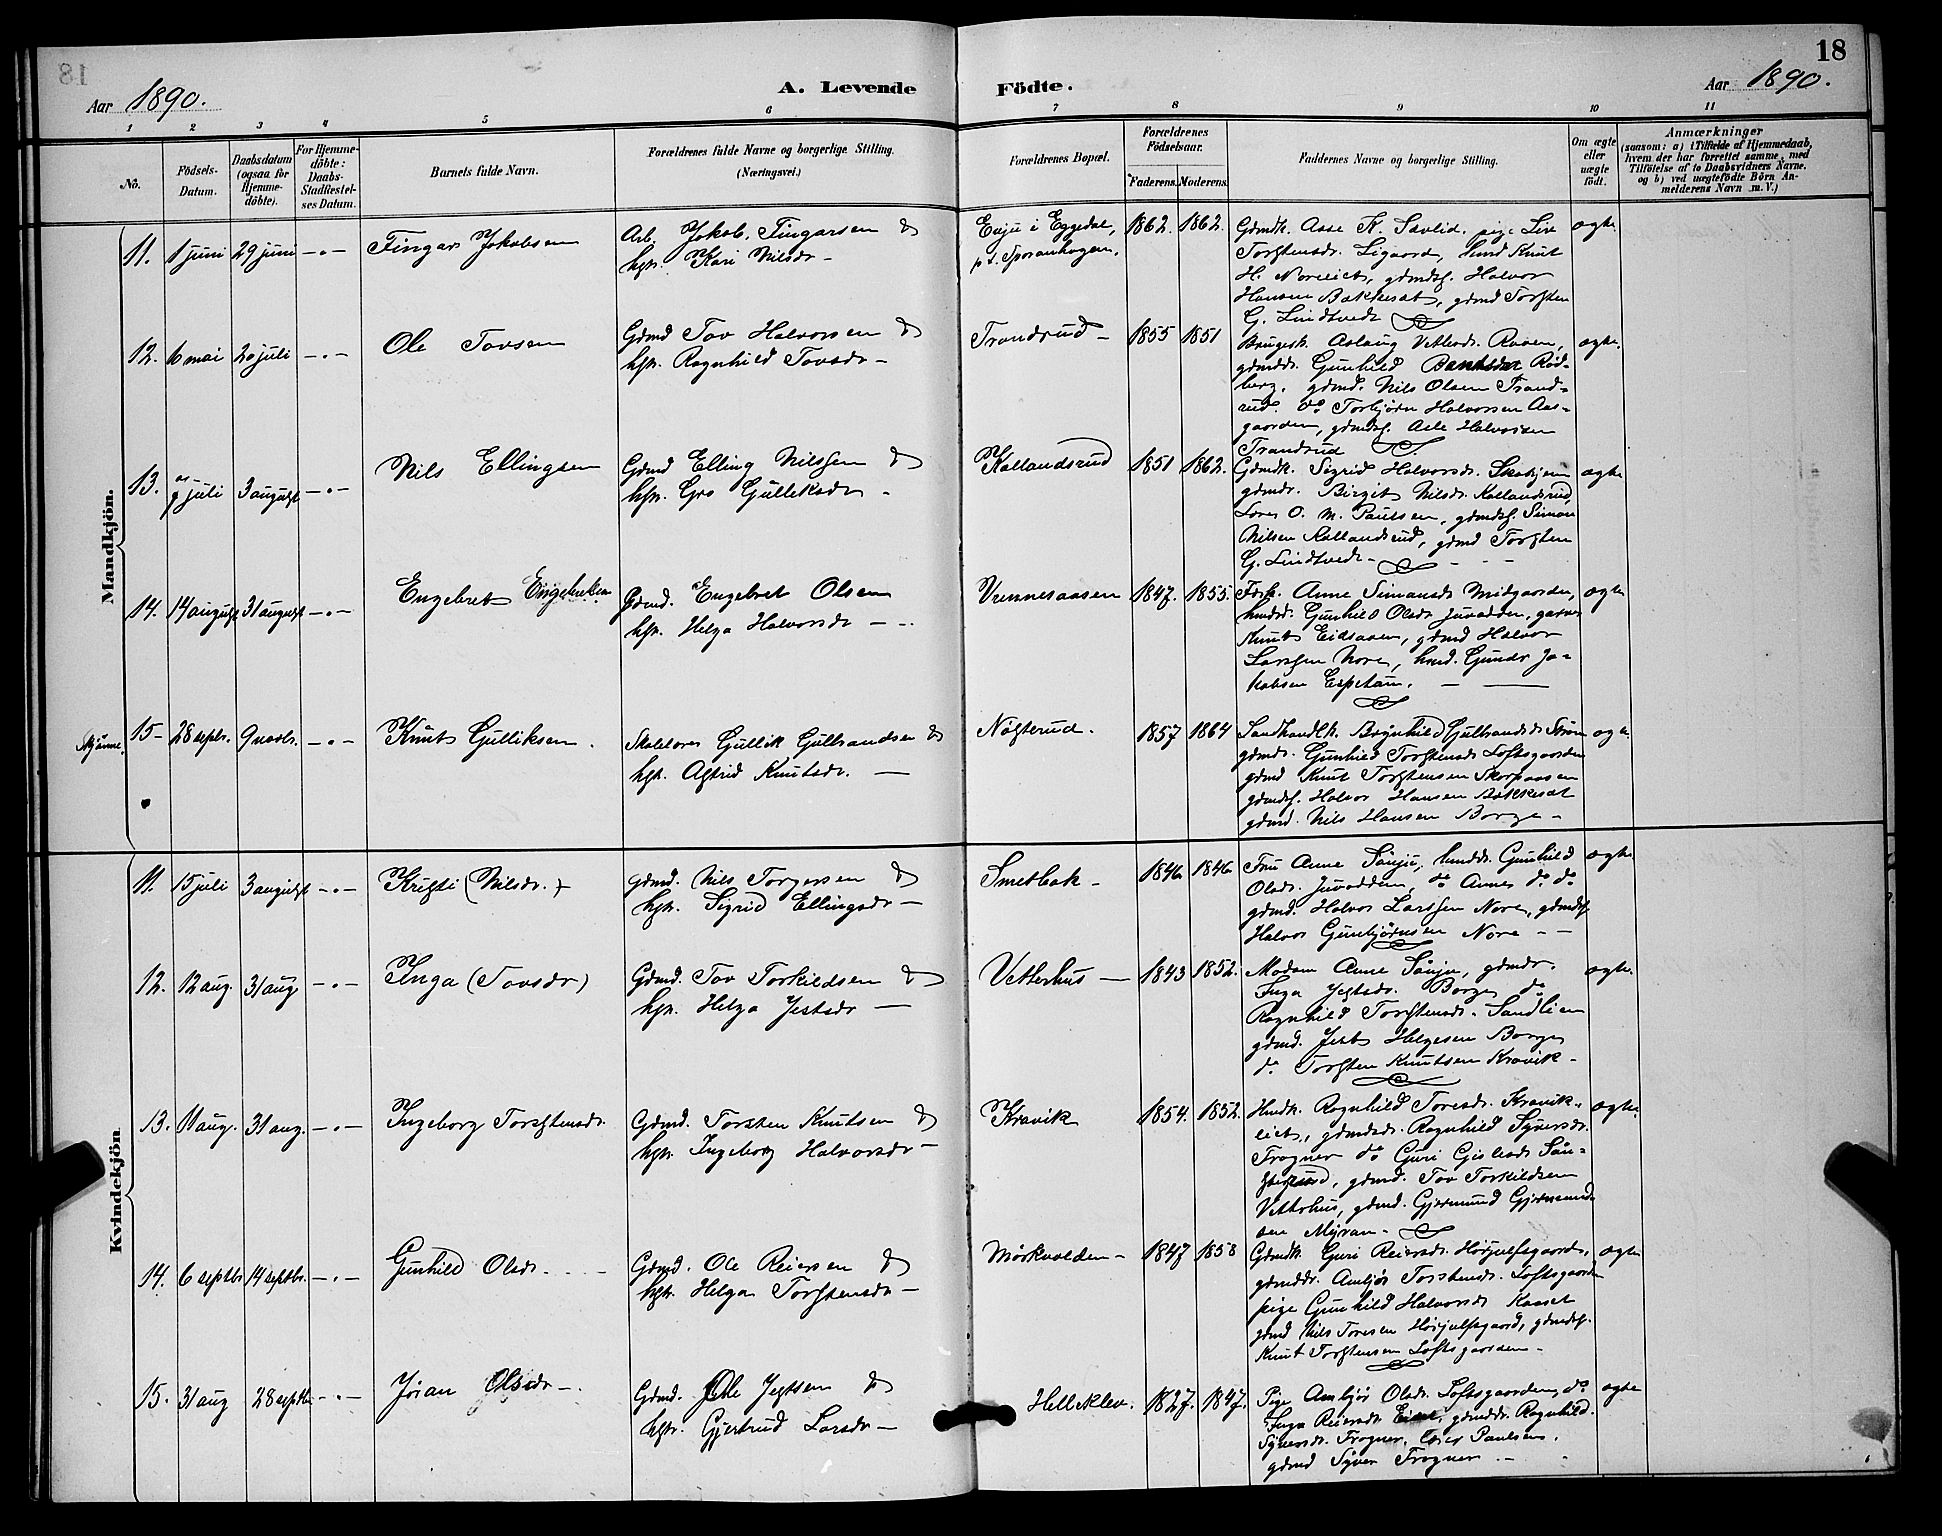 18
Aar 1890.
A. Levende Födte.
Aar 1890.
1 2 3 4 5 6 7 8 9 10 11
No.
Födsels-Datum.
Daabsdatum (ogsaa for Hjemme-döbte).
For Hjemme-döbte: Daabs-Stadfæstel-ses Datum.
Barnets fulde Navn.
Forældrenes fulde Navne og borgerlige Stilling. (Næringsvei.)
Forældrenes Bopæl.
Forældrenes Födselsaar.
Faderens. Moderens.
Faddernes Navne og borgerlige Stilling.
Om ægte eller uægte födt.
Anmærkninger
(saasom: a) i Tilfælde af Hjemmedaab,
hvem der har forrettet samme, med
Tilföielse af to Daabsvidners Navne.
og b) ved uægtefödte Börn An-
melderens Navn m. V.)
Mandkjön.
11. 1 juni 29 juni -"- Fingar Jakobsen
Arb. Jakob Fingarsen &
hstr. Kari Nilsdr -
Enju i Eggedal,
p.t. Sporanhogen.
1862. 1862.
Gdmdk. Aase K. Savlid. pige Live
Torstensdr. Ligaard, hmd Knut
H. Noreiet, gdmds. Halvor
Hansen Bakkesæt, gdmd Torsten
G. Lindtvedt
ægte.
12. 6 mai 20 juli -"- Ole Tovsen
Gdmd Tov Halvorsen &
hstr. Ragnhild Tovsdr -
Trandrud - 1855 1851
Brugesk. Aslaug Vetlesdr. Ruaen,
gdmdd. Gunhild Rød-
berg, gdmd. Nils Olsen Trand-
rud. do Torbjørn Halvorsen Aas-
gaarden, gdmds. Asle Halvorsen
Trandrud
ægte.
13. 9 juli 3 august -"- Nils Ellingsen
Gdmd Elling Nilssen &
hstr. Gro Gulliksdr -
Kallandsrud 1851 1862.
Gdmdk. Sigrid Halvorsdr. Skabjem
gdmdr. Birgit Nilsdr. Kallandsrud,
Lærer O. M. Paulsen, gdmds. Simon
Nilsen Kallandsrud, gdmd Torsten
G. Lindtvedt -
ægte
14. 14 august 31 august -"- Engebret Engebretsen
Gdmd. Engebret Olsen
hstr. Helga Halvorsdr -
Vrennesaasen 1847. 1855.
Anne Simonsdr Midgaarden,
hmdd. Gunhild Olsdr Juvadden,
Knut Eidsaaen, gdmd Halvor
Larssen Nore, hmd. Gunder Ja-
kobsen Espetun. -
ægte
Skjønne. 15- 28 septbr. 9 novbr. -"- Knut Gulliksen.
Skolelærer Gullik Gulbrandsen &
hstr. Astrid Knutsdr. -
Nøsterud. 1857 1864
Landhandlk. Bøynhild Gulbrandsdr Strøm
gdmdr. Gunhild Torstensdr Loftsgaarden
gdmd Knut Torstensen Skorpaasen
gdmds. Halvor Hansen Bakkesæt
gdmd. Nils Hansen Borge -
ægte.
Kvindekjön
11. 15 juli 3 august -"- Kristi (Nilsdr.)
Gdmd. Nils Torgersen &
hstr. Sigrid Ellingsdr -
Smetbak - 1846 1846
Fru Anne Sønju, hmdd. Gunhild
Olsdr. Juvadden, do Anne do do
gdmd. Halvor Larssen Nore, gdmds.
Halvor Gunbjørnsen Nore -
ægte
12. 12 aug. 31 aug -"- Inga (Tovsdr)
Gdmd. Tov Torkildsen &
hstr. Helga Jestsdr -
Vetterhus - 1843 1852.
Madam Anne Sønju, gdmdr.
Inga Jestsdr. Borge do
Ragnhild Torstensdr. Sandlien
gdmd. Jest Helgesen Borge
do. Torsten Knutsen Kravik -
ægte.
13. 11 aug. 31 aug. -"- Ingeborg Torstensdr.
Gdmd. Torsten Knutsen &
hstr. Ingeborg Halvorsdr -
Kravik 1854. 1852.
Hmdk. Ragnhild Toresdr. Kravik-
eiet, gdmdsdr. Ragnhild Syversdr.
Frogner do Guri Gislesdr Søn-
gdmd. Tov Torkildsen
Vetterhus, gdmd. Gjermund Gjermund-
sen Myran -
ægte
14. 6 septbr 14 septbr. -"- Gunhild Olsdr.
Gdmd. Ole Reiersen &
hstr. Helga Torstensdr -
Mørkvolden - 1847 1858
Gdmdk. Guri Reiersdr. Hørjulfsgaarden,
gdmddr. Ambjør Torstensdr. Loftsgaarden
pige Gunhild Halvorsdr Kaaset
gdmd Nils Toresen Hørjulfsgaard, gdmds.
Knut Torstensen Loftsgaarden -
ægte
15. 31 aug 28 septbr. -"- Jøran Olsdr -.
Gdmd. Ole Jestsen &
hstr. Gjertrud Larsdr -
Helleklev. 1827. 1847.
Pige Ambjør Olsdr. Loftsgaarden, do
Inga Reiersdr. gdmddr. Ragnhild
Syversdr. Frogner. Paulsen.
gdmd Syver Frogner -
ægte